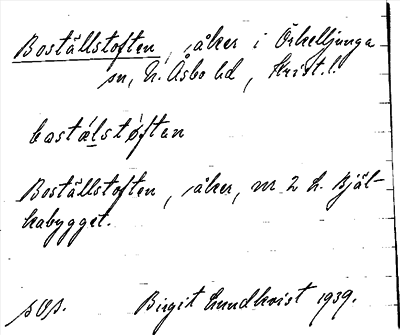 Boställstoften, åker i Örkelljunga
sn, N. Åsbo hd, Krist. l.
bastálstǿften
Boställstoften, åker, m 2 h. Bjäl-
kabygget.
sOp. Birgit Lundkvist 1939.